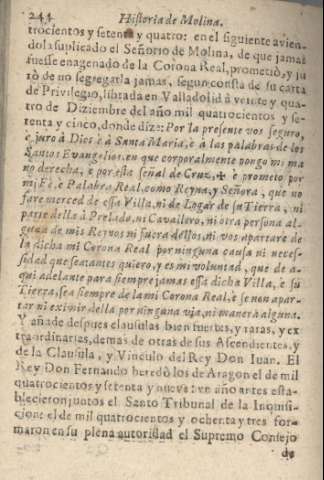 244 Historia de Molina.
trocientos y setenta y quatro: en el siguiente avien-
dola suplicado el Señorio de Molina, de que jamàs
fuesse enagenado de la Corona Real, prometiò, y ju
rò de no segregarla jamas, segun consta de su carta
de Privilegio, librada en Valladolid à veinte y qua-
tro de Diziembre del año mil quatrocientos y se-
tenta y cinco, donde dize: Por la presente vos seguro,
è juro à Dios è à Santa Maria, è à las palabras de los
Santos Evangelios, en que corporalmente pongo mi ma
no derecha, è por esta señal de Cruz, ✠ è prometo por
mi Fè, è Palabra Real, como Reyna, y Señora, que no
fare merced de essa Villa, ni de Logar de su Tierra, ni
parte della à Prelado, ni Cavallero, ni otra persona al-
guna de mis Reynos ni fuera dellos, ni vos apartare de
la dicha mi Corona Real por ninguna causa ni neces-
sidad que sea; antes quiero, y es mi voluntad, que de a-
qui adelante para siempre jamas essa dicha Villa, è su
Tierra, sea siempre de la mi Corona Real, è se non apar-
tar ni eximir della por ninguna via, ni manera alguna.
Y añade despues clausulas bien fuertes, y raras, y ex
traordinarias, demas de otras de sus Ascendientes, y
de la Clausula, y Vinculo del Rey Don Iuan. El
Rey Don Fernando heredò los de Aragon el de mil
quatrocientos y setenta y nueve: vn año antes esta-
blecieron juntos el Santo Tribunal de la Inquisi-
cion: el de mil quatrocientos y ochenta y tres for-
maron en su plena autoridad el Supremo Consejo
de